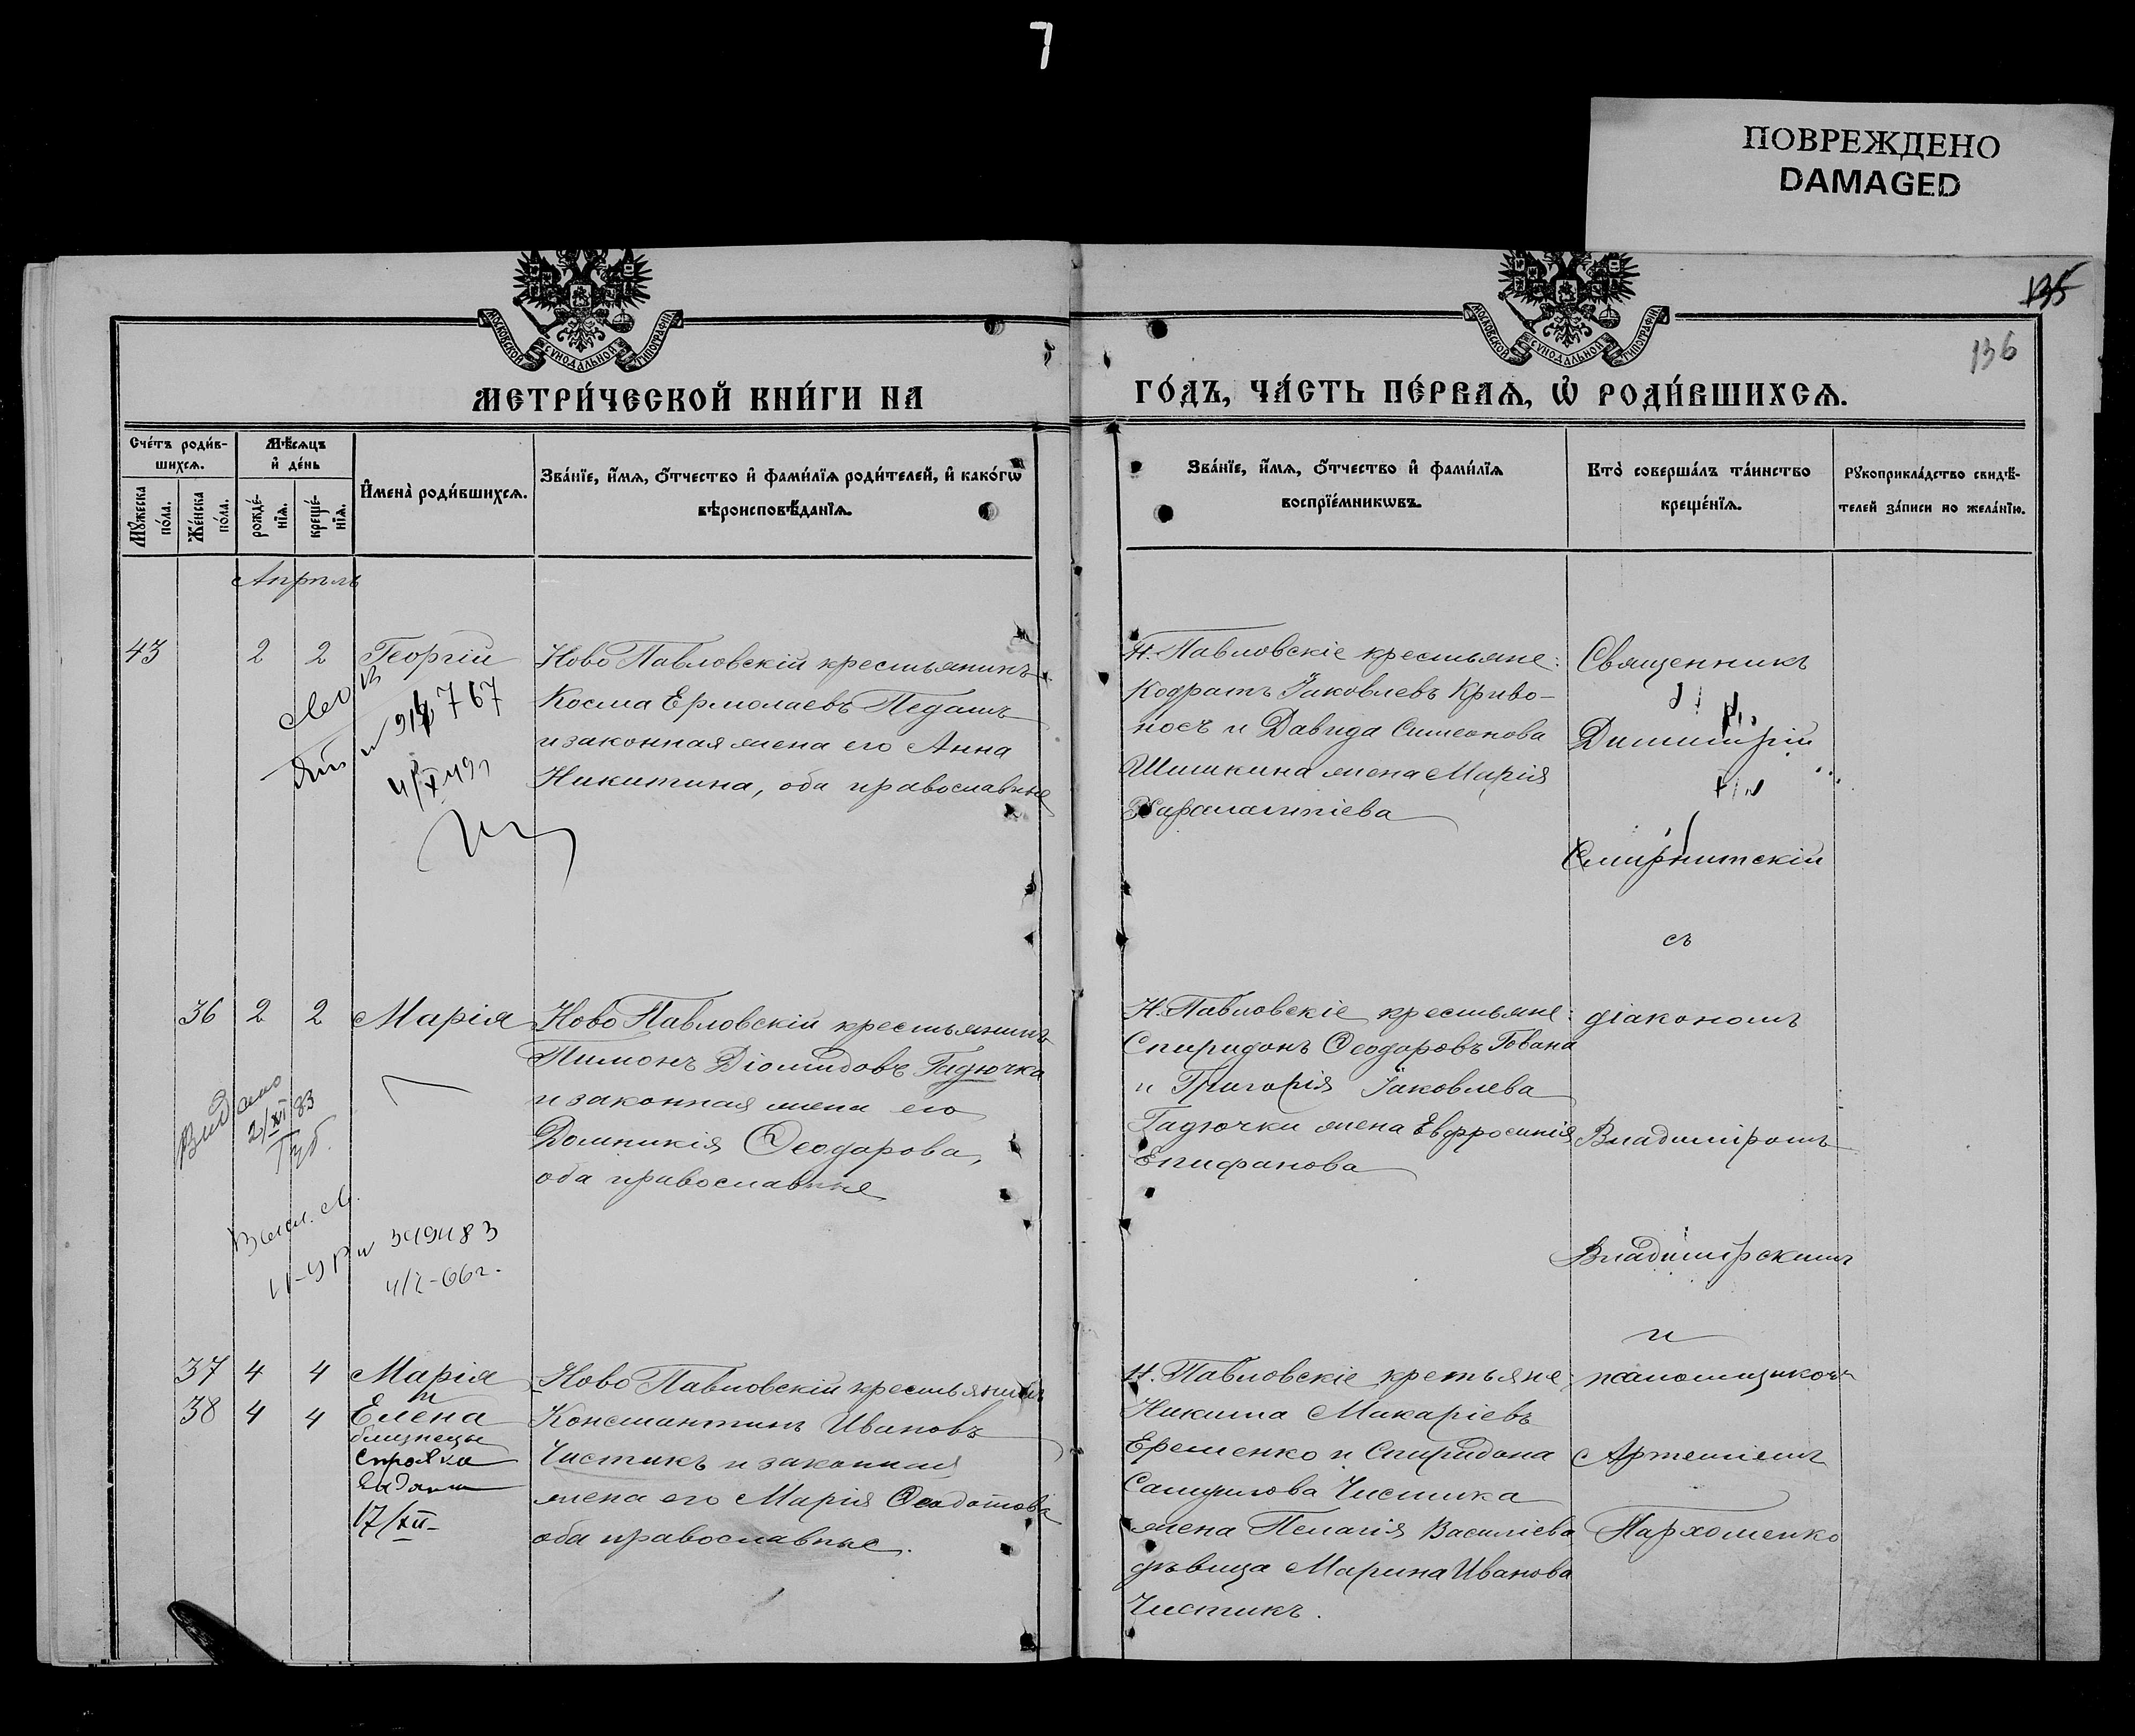 7
ПОВРЕЖДЕНО
DAMAGED
135
136
МОСКОВСКОЙ СѴНОДАЛЬНОЙ ТИПОГРАФІИ
МОСКОВСКОЙ СѴНОДАЛЬНОЙ ТИПОГРАФІИ
МЕТРИ́ЧЕСКОЙ КНИ́ГИ НА
ГО́ДЪ, ЧА́СТЬ ПЕ́РВАѦ, Ѡ҆ РОДИ́ВШИХСѦ.
Сче́тъ роди́в-
шихсѧ.
Мꙋ́жеска
по́ла.
Же́нска
по́ла.
Мѣ́сѧцъ
и҆ де́нь
рожде́-
нїѧ.
креще́-
нїѧ.
И҆мена̀ роди́вшихсѧ.
Зва́нїе, и҆́мѧ, ѻ҆́тчество и҆ фами́лїѧ роди́телей, и҆ како́гѡ
вѣроисповѣ́данїѧ.
Зва́нїе, и҆́мѧ, ѻ҆́тчество и҆ фами́лїѧ
воспрїе́мникѡвъ.
Кто̀ соверша́лъ та́инство
креще́нїѧ.
Рꙋкоприкла́дство свидѣ́-
телей за́писи по жела́нїю.
Апрѣль
43 2 2 Георгій
Ново Павловскій крестьянинъ
Косма Ермолаевъ Педашъ
и законная жена его Анна
Никитина, оба православные
Н. Павловскіе крестьяне:
Кодратъ Іаковлевъ Криво-
носъ и Давида Симеонова
Шишкина жена Марія
Харалампіева
Священникъ
Димитрій
Смирнитскій
съ
767
36 2 2 Марія
Ново Павловскій крестьянинъ
Пимонъ Діомидовъ Гадючка
и законная жена его
Домникія Ѳеодорова,
оба православные
Н. Павловскіе крестьяне:
Спиридонъ Ѳеодоровъ Гована
и Григорія Іаковлева
Гадючки жена Евфросинія
Епифанова
діакономъ
Владиміромъ
Владимірскимъ
и
2/XI 83
4/I-66г.
37 4 4 Марія
38 4 4 Елена
близнецы
справка
видана
17/XII-
Ново Павловскій крестьянинъ
Константинъ Ивановъ
Чистикъ и законная
жена его Марія Ѳеодотова
оба православные.
Н. Павловскіе кретьяне:
Никита Макаріевъ
Еременко и Спиридона
Самуилова Чистика
жена Пелагія Василіева
дѣвица Марина Иванова
Чистикъ.
псаломщикомъ
Артеміемъ
Пархоменко